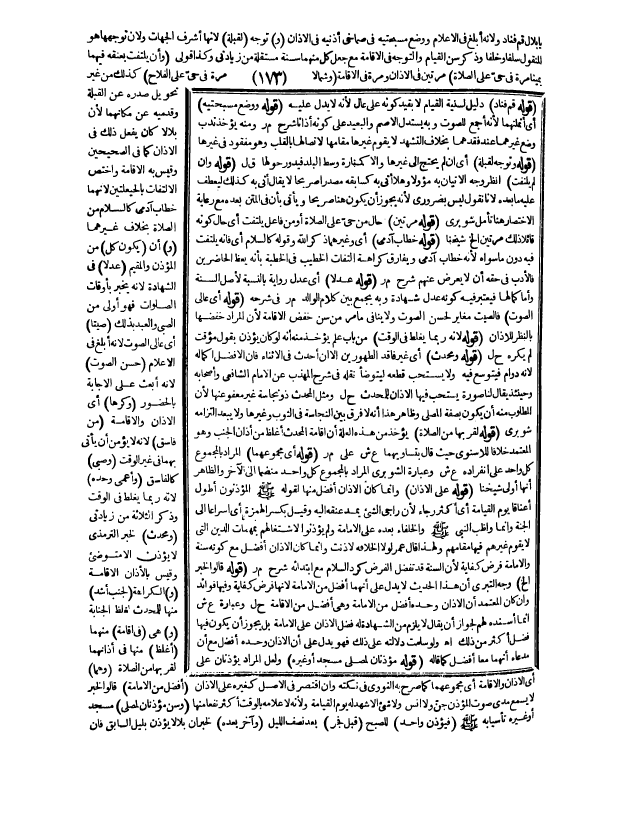 يا بلال قم فناد ولانه أبلغ فى الاعلام ووضع مسبحتيه فى صماخى أذنيه فى الاذان (و) توجه (لقبلة) لانها أشرف الجهات ولان توجهها هو
المنقول سلفا وخلفا وذكر سن القيام والتوجه فى الاقامة مع جعل كل منهما سنة مستقلة من زيادتى وكذا قولى (وأن يلتفت بعنقه فيهما
يمينا مرة فى حى على الصلاة) مرتين فى الاذان ومرة فى الاقامة (وشمالا (١٧٣) مرة فى حى على الفلاح) كذلك من غير
(قوله قم فناد) دليل لسنية القيام لا بقيد كونه على عال لأنه لا يدل عليه (قوله ووضع مسبحتيه)
أى أنملتهما لأنه أجمع للصوت وبه يستدل الاصم والبعيد على كونه أذانا شرح م ر ومنه يؤخذ ندب
وضع غيرهما عند فقدهما بخلاف التشهد لا يقوم غيرها مقامها لاتصالها بالقلب وهو مفقود فى غيرها
(قوله وتوجه لقبلة) أى ان لم يحتج الى غيرها والا كمنارة وسط البلد فيدور حولها قل (قوله وان
لم يلتفت) انظر وجه الاتيان به مؤولا وهلا أتى به كسابقه مصدرا صريحا لا يقال أتى به كذلك ليعطف
عليه ما بعده لانا نقول ليس بضرورى لأنه يجوز أن يكون هنا صريحا ويأتى بأن فى المتن بعد مع رعاية
الاختصار هنا تأمل شوبرى (قوله مرتين) حال من حى على الصلاة أو من فاعل يلتفت أى حال كونه
قائلا ذلك مرتين الخ شيخنا (قوله خطاب آدمى) أى وغيرهما ذكر الله وقوله كالسلام أى فانه يلتفت
فيه دون ماسواه لأنه خطاب آدمى ويفارق كراهة التفات الخطيب فى الخطبة بأنه يعظ الحاضرين
فالأدب فى حقه أن لا يعرض عنهم شرح م ر (قوله عدلا) أى عدل رواية بالنسبة لأصل السنة
وأما كمالها فيعتبر فيه كونه عدل شهادة وبه يجمع بين كلام الوالد م ر فى شرحه (قوله أى عالى
الصوت) فالصيت مغاير لحسن الصوت ولا ينافى ما مر من سن خفض الاقامة لأن المراد خفضها
بالنظر للاذان (قوله لانه ربما يغلط فى الوقت) من باب علم يؤخذ منه أنه لو كان يؤذن بقول مؤقت
لم يكره حل (قوله ومحدث) أى غير فاقد الطهورين الا ان أحدث فى الاثناء فان الافضل اكماله
لانه دوام فيتوسع فيه ولا يستحب قطعه ليتوضأ نقله فى شرح المهذب عن الامام الشافعى وأصحابه
وحينئذ يقال لنا صورة يستحب فيها الاذان للمحدث حل ومثل المحدث ذو نجاسة غير معفو عنها لأن
المطلوب منه أن يكون بصفة المصلى وظاهر هذا أنه لا فرق بين النجاسة فى الثوب وغيرها ولا يبعد التزامه
شوبرى (قوله لقربها من الصلاة) يؤخذ من هذه العلة أن اقامة المحدث أغلظ من أذان الجنب وهو
المعتمد خلافا للاسنوى حيث قال بتساويهما ع ش على م ر (قوله أى مجموعهما) المراد بالمجموع
كل واحد على انفراده ع ش وعبارة الشوبرى المراد بالمجموع كل واحد منضما الى الآخر والظاهر
أنها أولى شيخنا (قوله على الاذان) وانما كان الاذان أفضل منها لقوله ﷺ المؤذنون أطول
أعناقا يوم القيامة أى أكثر رجاء لأن راجى الشئ يمد عنقه اليه وقيل بكسر الهمزة أى اسراعا الى
الجنة وانما واظب النبى ﷺ والخلفاء بعده على الامامة ولم يؤذنوا لاشتغالهم بمهمات الدين التى
لا يقوم غيرهم فيها مقامهم ولهذا قال عمر لولا الخلافة لاذنت وانما كان الاذان أفضل مع كونه سنة
والامامة فرض كفاية لأن السنة قد تفضل الفرض كرد السلام مع ابتدائه شرح م ر (قوله لخبر
الخ) وجه التبرى أن هذا الحديث لا يدل على أنهما أفضل من الامامة لانها فرض كفاية وفيها فوائد
وان كان المعتمد أن الاذان وحده أفضل من الامامة وهى أفضل من الاقامة حل وعبارة ع ش
انما أسنده لهم لجواز أن يقال لا يلزم من الشهادة له فضل الاذان على الامامة بل يجوز أن يكون فيها
فضل أكثر من ذلك اه ولو سلمت دلالته على ذلك فهو يدل على أن الاذان وحده أفضل مع أن
مدعاه أنهما معا أفضل كما قاله (قوله مؤذنان لمصلى مسجد أو غيره) ولعل المراد يؤذنان على
تحويل صدره عن القبلة
وقدميه عن مكانهما لأن
بلالا كان يفعل ذلك فى
الاذان كما فى الصحيحين
وقيس به الاقامة واختص
الالتفات بالحيعلتين لانهما
خطاب آدمى كالسلام من
الصلاة بخلاف غيرهما
(و) أن (يكون كل) من
المؤذن والمقيم (عدلا) فى
الشهادة لانه يخبر بأوقات
الصلوات فهو أولى من
الصبى والعبد بذلك (صيتا)
أى عالى الصوت لانه أبلغ فى
الاعلام (حسن الصوت)
لانه أبعث على الاجابة
بالحضور (وكرها) أى
الاذان والاقامة (من
فاسق) لانه لا يؤمن أن يأتى
بهما فى غير الوقت (وصبى)
كالفاسق (وأعمى وحده)
لانه ربما يغلط فى الوقت
وذكر الثلاثة من زيادتى
(ومحدث) لخبر الترمذى
لا يؤذن الا متوضئ
وقيس بالأذان الاقامة
(و) الكراهة (لجنب أشد)
منها للمحدث لغلظ الجنابة
(و) هى (فى اقامة) منهما
(أغلظ) منها فى أذانهما
لقربها من الصلاة (وهما)
أى الاذان والاقامة أى مجموعهما كما صرح به النووى فى نكته وان اقتصر فى الاصل كغيره على الاذان (أفضل من الامامة) قالوا لخبر
لا يسمع مدى صوت المؤذن جن ولا انس ولا شئ الا شهد له يوم القيامة ولأنه لاعلامه بالوقت أكثر نفعا منها (وسن مؤذنان لمصلى) مسجد
أو غيره تأسيا به ﷺ (فيؤذن واحد) للصبح (قبل فجر) بعد نصف الليل (وآخر بعده) لخبر ان بلالا يؤذن بليل السابق فان